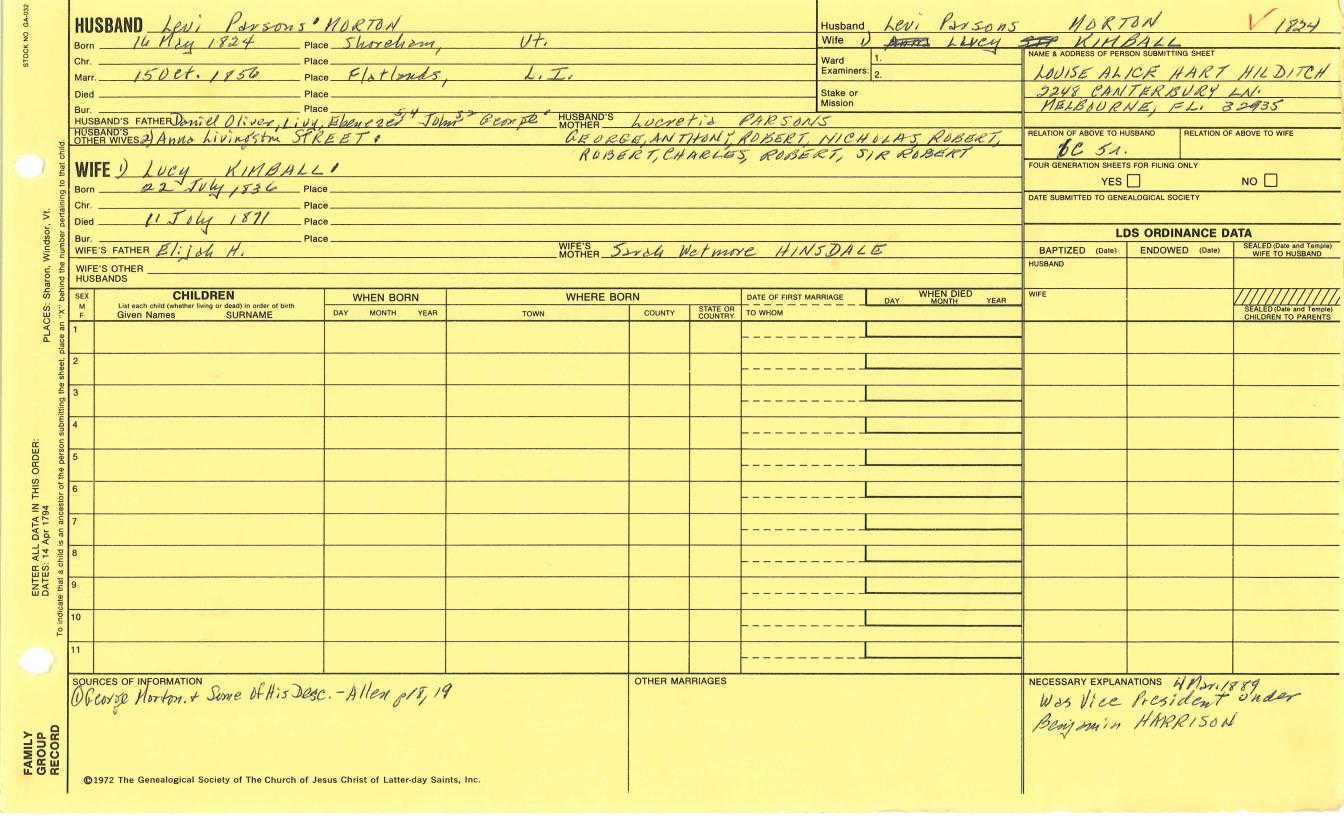 STOCK NO. GA-032
HUSBAND Levi Parsons MORTON
Born 16 May 1824 Place Shoreham, Vt.
Chr. Place
Marr. 15 Oct. 1856 Place Flatlands, L.I.
Died Place
Bur. Place
HUSBAND'S FATHER Daniel Oliver, Livy, Ebenezer 54 John 32 George HUSBAND'S MOTHER Lucretia PARSONS
HUSBAND'S OTHER WIVES 2) Anna Livingston STREET. GEORGE, ANTHONY, ROBERT, NICHOLAS, ROBERT,
ROBERT, CHARLES, ROBERT, SIR ROBERT
WIFE 1) Lucy KIMBALL
Born 22 July 1836 Place
Chr. Place
Died 11 July 1871 Place
Bur. Place
WIFE'S FATHER Elijah H. WIFE'S MOTHER Sarah Wetmore HINSDALE
WIFE'S OTHER HUSBANDS
Husband Levi Parsons MORTON 1824
Wife 1) LUCY KIMBALL
Ward Examiners: 1.
2.
Stake or Mission
NAME & ADDRESS OF PERSON SUBMITTING SHEET
LOUISE ALICE HART HILDITCH
2248 CANTERBURY LN.
MELBOURNE, FL. 32935
RELATION OF ABOVE TO HUSBAND RELATION OF ABOVE TO WIFE
6C 5r.
FOUR GENERATION SHEETS FOR FILING ONLY
YES NO
DATE SUBMITTED TO GENEALOGICAL SOCIETY
LDS ORDINANCE DATA
BAPTIZED (Date) ENDOWED (Date) SEALED (Date and Temple) WIFE TO HUSBAND
HUSBAND
WIFE
SEALED (Date and Temple) CHILDREN TO PARENTS
SEX M F
CHILDREN
List each child (whether living or dead) in order of birth
Given Names SURNAME
WHEN BORN
DAY MONTH YEAR
WHERE BORN
TOWN COUNTY STATE OR COUNTRY
DATE OF FIRST MARRIAGE
TO WHOM
WHEN DIED
DAY MONTH YEAR
1
2
3
4
5
6
7
8
9
10
11
SOURCES OF INFORMATION
① George Morton & Some of His Desc. - Allen p18, 19
OTHER MARRIAGES
NECESSARY EXPLANATIONS 4 Mar. 1889
Was Vice President under
Benjamin HARRISON
©1972 The Genealogical Society of The Church of Jesus Christ of Latter-day Saints, Inc.
FAMILY
GROUP
RECORD
ENTER ALL DATA IN THIS ORDER:
DATES: 14 Apr 1794 PLACES: Sharon, Windsor, Vt.
To indicate that a child is an ancestor of the person submitting the sheet, place an "X" behind the number pertaining to that child.